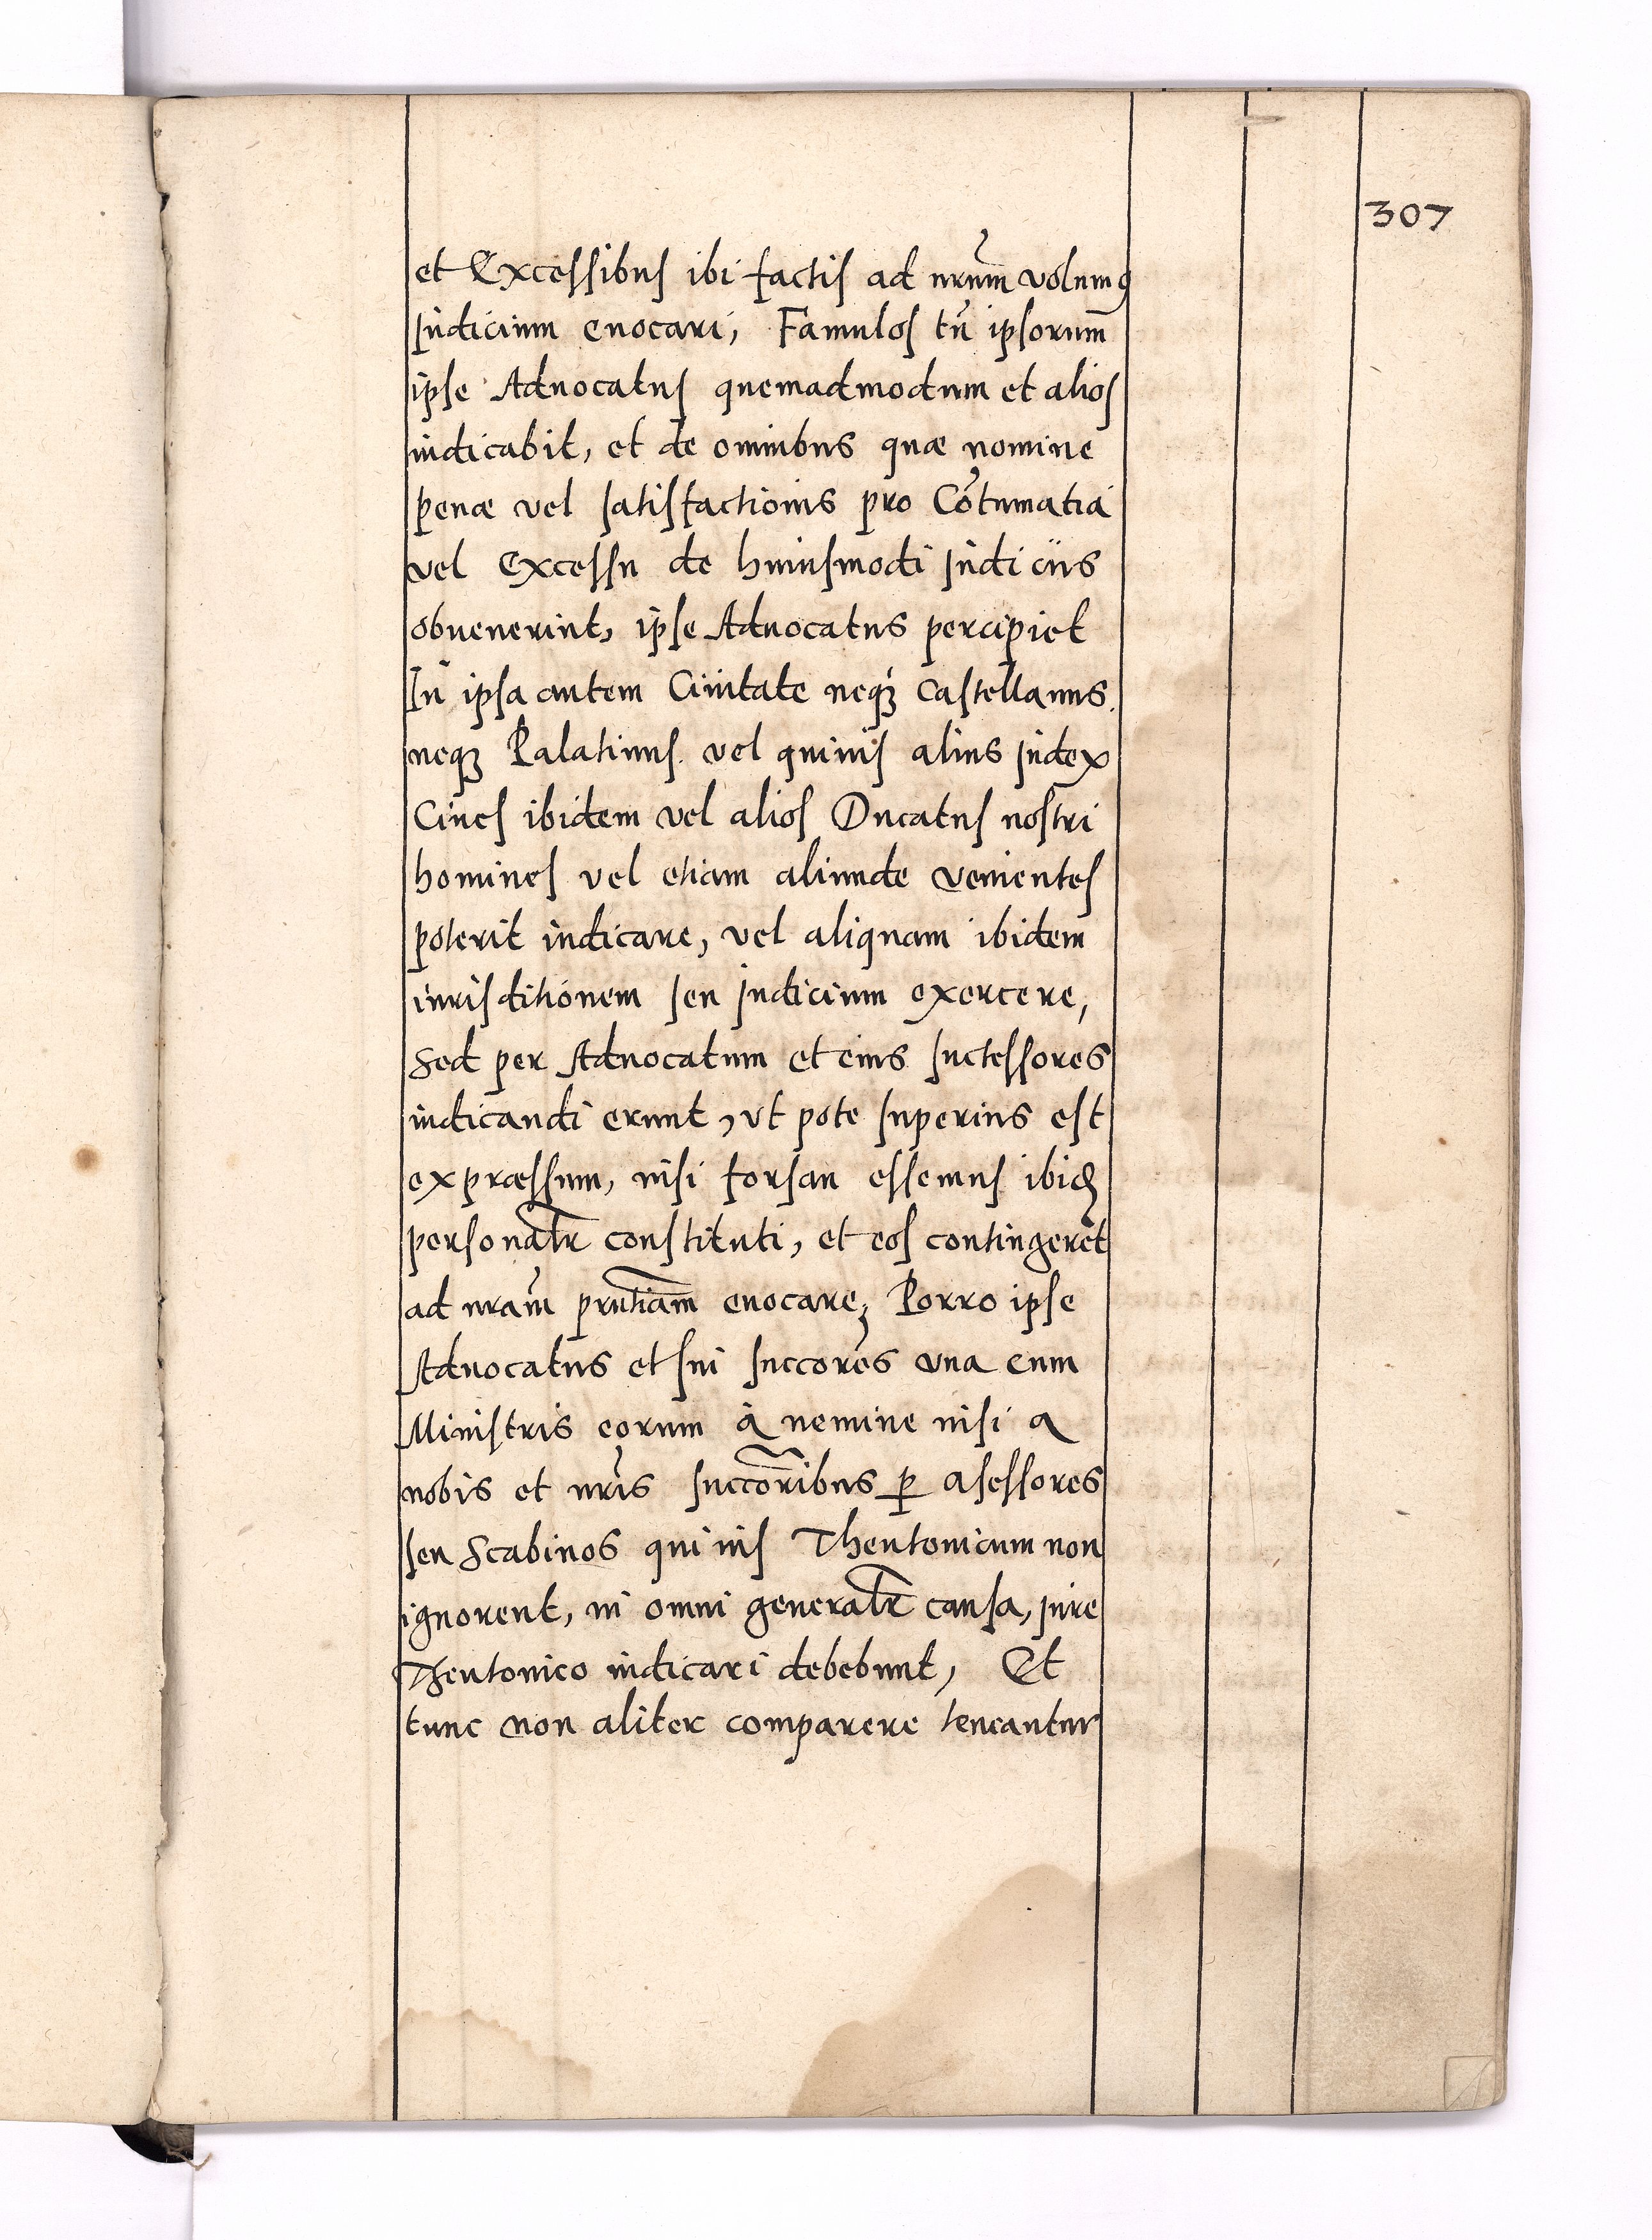 307
et Excessibus ibi factis ad nrum̃ volumꝰ
Judicium euocari, Famulos tñ ipsorum̃
ipse Aduocatus quemadmodum et alios
iudicabit, et de omnibus quæ nomine
penæ vel satisfactionis pro Cõtumatia
vel Excessu de huiusmodi Judiciis
obuenerint, ipse Aduocatus percipiet
In ipsa autem Ciuitate neqꝫ Castellanus.
neqꝫ Palatinus. vel quiuis alius Judex
Ciues ibidem vel alios Ducatus nostri
homines vel etiam aliunde venientes
poterit iudicare, vel aliquam ibidem
iurisditionem seu Judicium exercere,
Sed per Aduocatum et eius suctessores
iudicandi erunt, ut pote superius est
expræssum, nisi forsan essemus ibid̃
personalr̃ constituti, et eos contingerẽt
ad nram̃ prñtiam̃ euocare; Porro ipse
Aduocatus et sui succorẽs una cum
Ministris eorum à nemine nisi a
nobis et nrĩs succorĩbus ꝑ asessores
seu Scabinos qui ius Theutonicum non
ignorent, in omni generalr̃ causa, jure
Theutonico iudicari debebunt, Et
tunc non aliter comparere teneantur